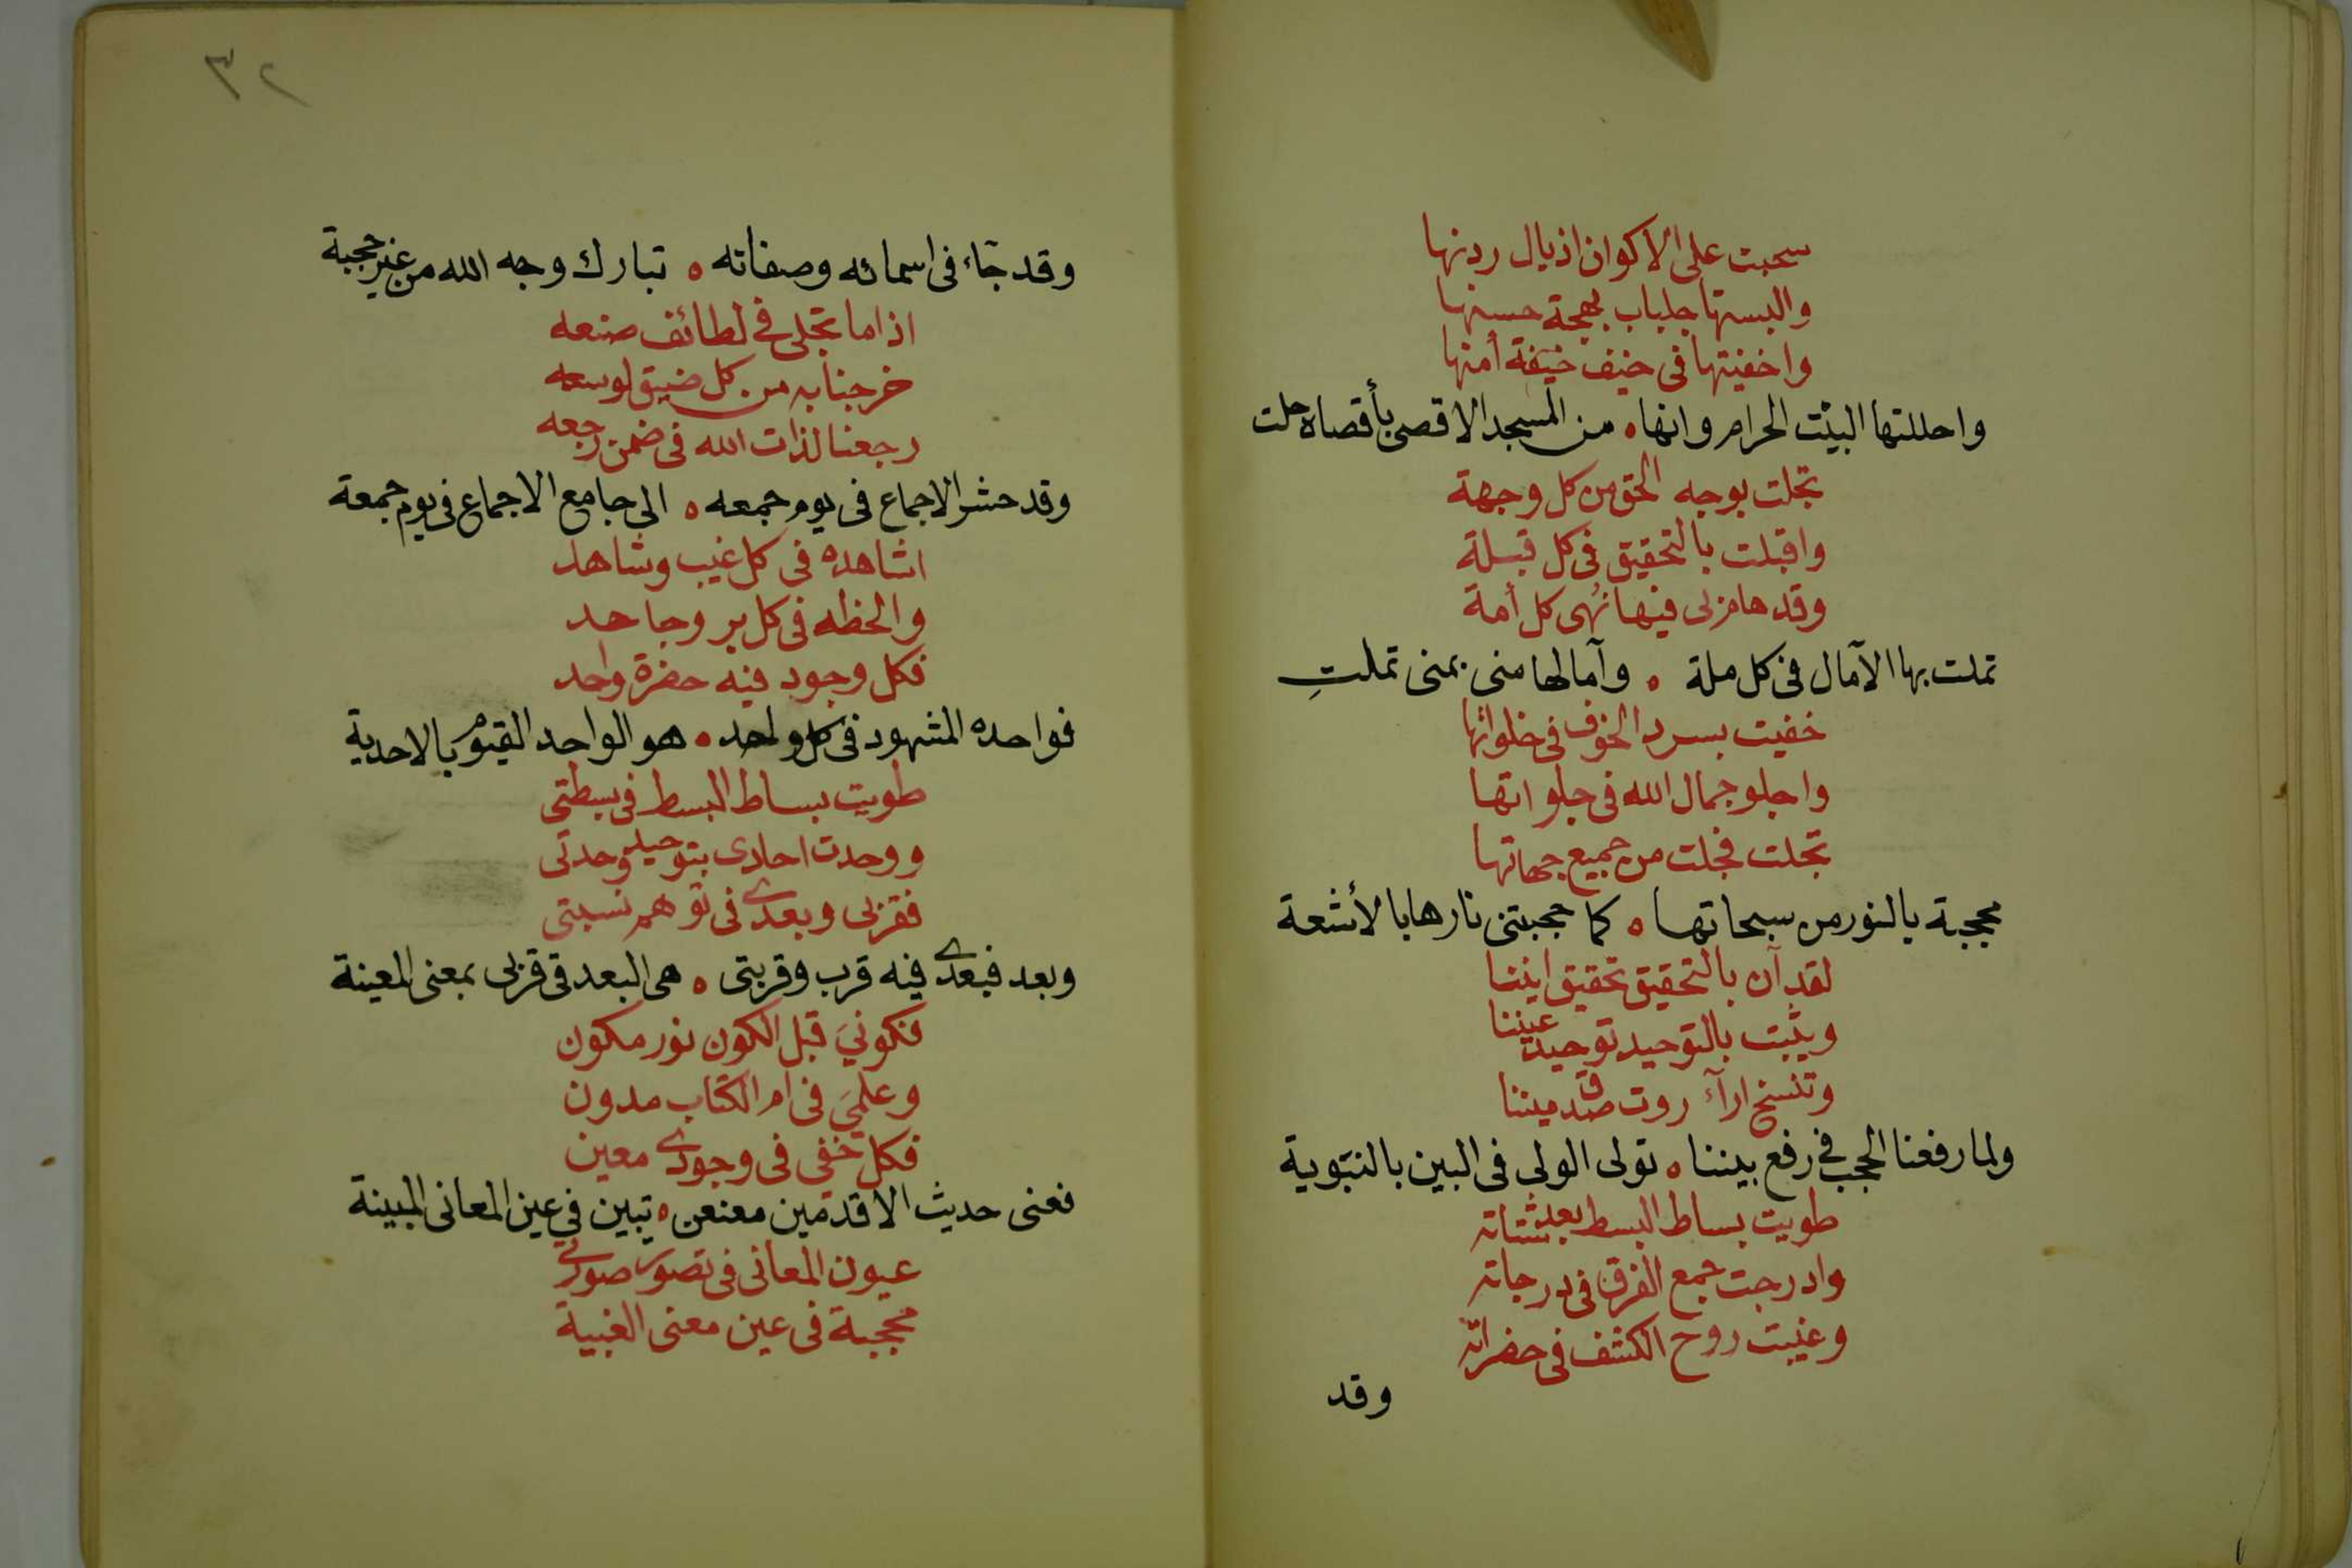 سحبت على الاكوان اذيال ردنها
والبستها جلباب بهجة حسنها
واخفيتها في خيف خيفة أمنها
واحللتها البيت الحرام وانها ه من المسجد الاقصى بأقصاه حلت
تجلت بوجه الحق من كل وجهة
واقبلت بالتحقيق في كل قبلة
وقد هام لى فيها نُهى كل أمة
تملت بها الآمال في كل ملة ه وآمالها منى بمنى تملتِ
خفيت بسرد الخوف في خلواتها
واجلو جمال الله في جلواتها
تجلت فجلت من جميع جهاتها
محجبة بالنور من سبحاتها ه كما حجبتنى نارها بالأشعة
لقد آن بالتحقيق تحقيق اننا
ويثبت بالتوحيد توحيد عيننا
وتنسخ ارآء روت صدق ميننا
ولما رفعنا الحجب في رفع بيننا ه تولى الولى في البين بالنبوية
طويت بساط البسط بعد شتاته
وادرجت جمع الفرق في درجاته
وغيبت روح الكشف في حضراته
وقد
٣٢
وقد جآء في اسمائه وصفاته ه تبارك وجه الله من غير حجبة
اذا ما تجلى في لطائف صنعه
خرجنا به من كل ضيق لوسعه
رجعنا لذات الله في ضمن رجعه
وقد حشر الاجماع في يوم جمعه ه الى جامع الاجماع في يوم جمعة
اشاهده في كل غيب وشاهد
والحظه في كل بر وجاحد
فكل وجود فيه حضرة واحد
فواحده المشهود في كل واحد ه هو الواحد القيوم بالاحدية
طويت بساط البسط في بسطتى
ووحدت احادى بتوحيد وحدتى
فقربى وبعدى في توهم نسبتى
وبعد فبعدى فيه قرب وقربتى ه هى البعد في قربى بمعنى المعية
فكونيَ قبل الكون نور مكون
وعلميَ في ام الكتاب مدون
فكل خفى في وجودى معين
فعنى حديث الاقدمين معنعن ه تبين في عين المعانى المبينة
عيون المعانى في تصور صورتى
محجبة في عين معنى الغيبية